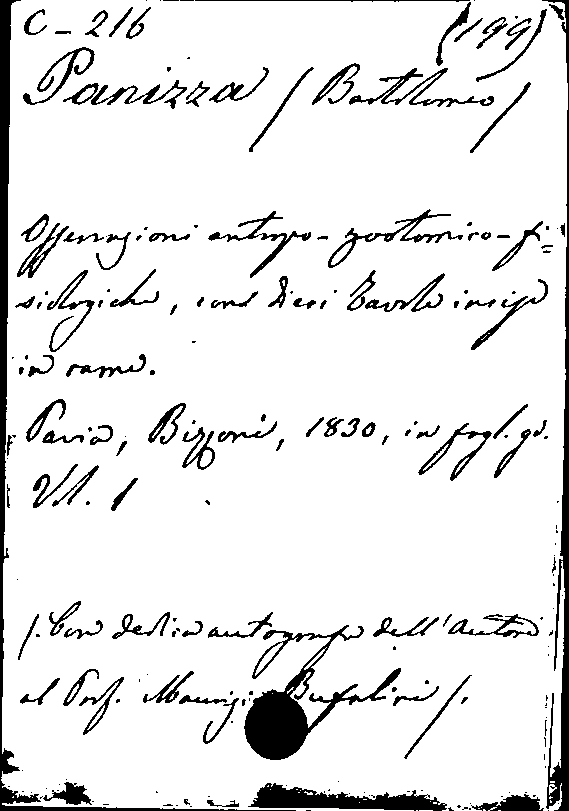 C - 216 (199)
Panizza / Bartolomeo /
Osservazioni antropo - zootomico - fi=
siologiche, con dieci Tavole incise
in rame.
Pavia, Bizzoni, 1830, in fogl. gr.
Vol. 1
/. Con dedica autografa dell'Autore
al Prof. Maurizio Bufalini /.